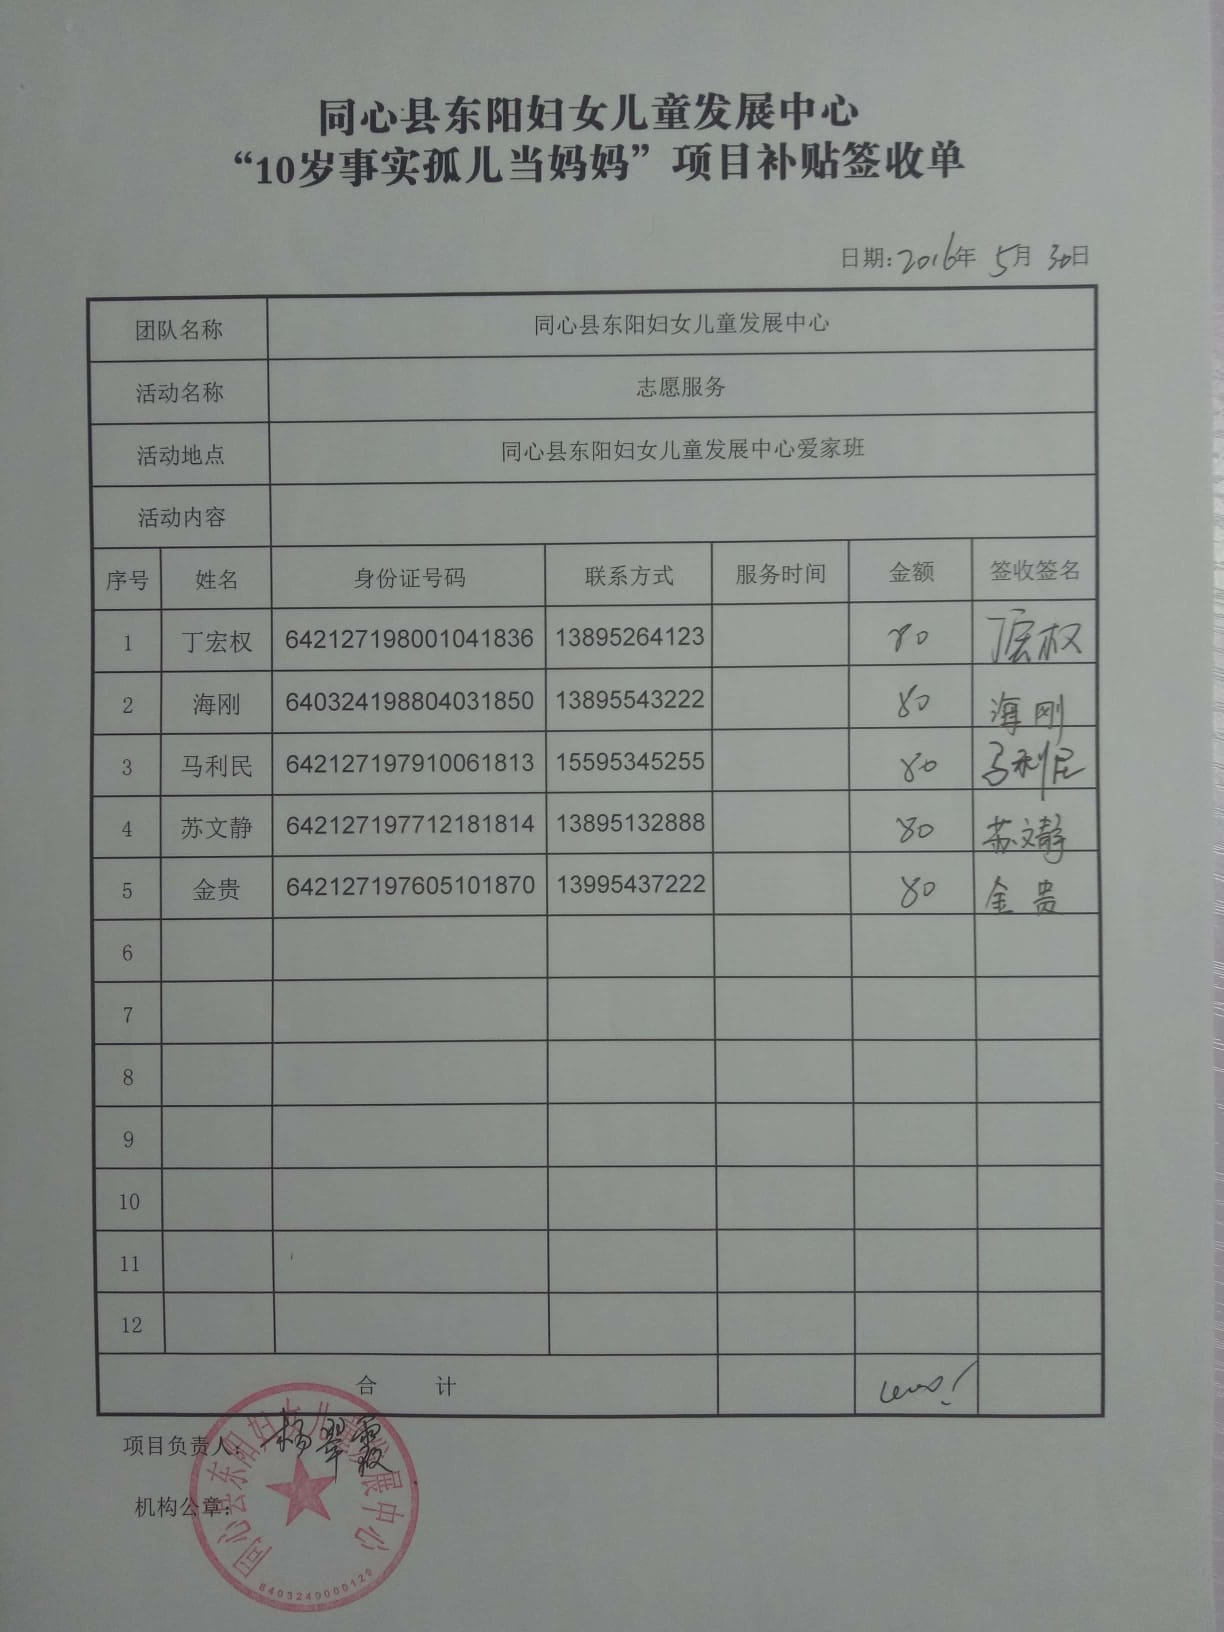 同心县东阳妇女儿童发展中心
“10岁事实孤儿当妈妈”项目补贴签收单
日期:2016年 5月 30日
团队名称 同心县东阳妇女儿童发展中心
活动名称 志愿服务
活动地点 同心县东阳妇女儿童发展中心爱家班
活动内容
序号 姓名 身份证号码 联系方式 服务时间 金额 签收签名
1 丁宏权 642127198001041836 13895264123 80 丁宏权
2 海刚 640324198804031850 13895543222 80 海刚
3 马利民 642127197910061813 15595345255 80 马利民
4 苏文静 642127197712181814 13895132888 80 苏文静
5 金贵 642127197605101870 13995437222 80 金贵
6
7
8
9
10
11
12
合 计
项目负责人: 杨翠霞
机构公章:
同心县东阳妇女儿童发展中心